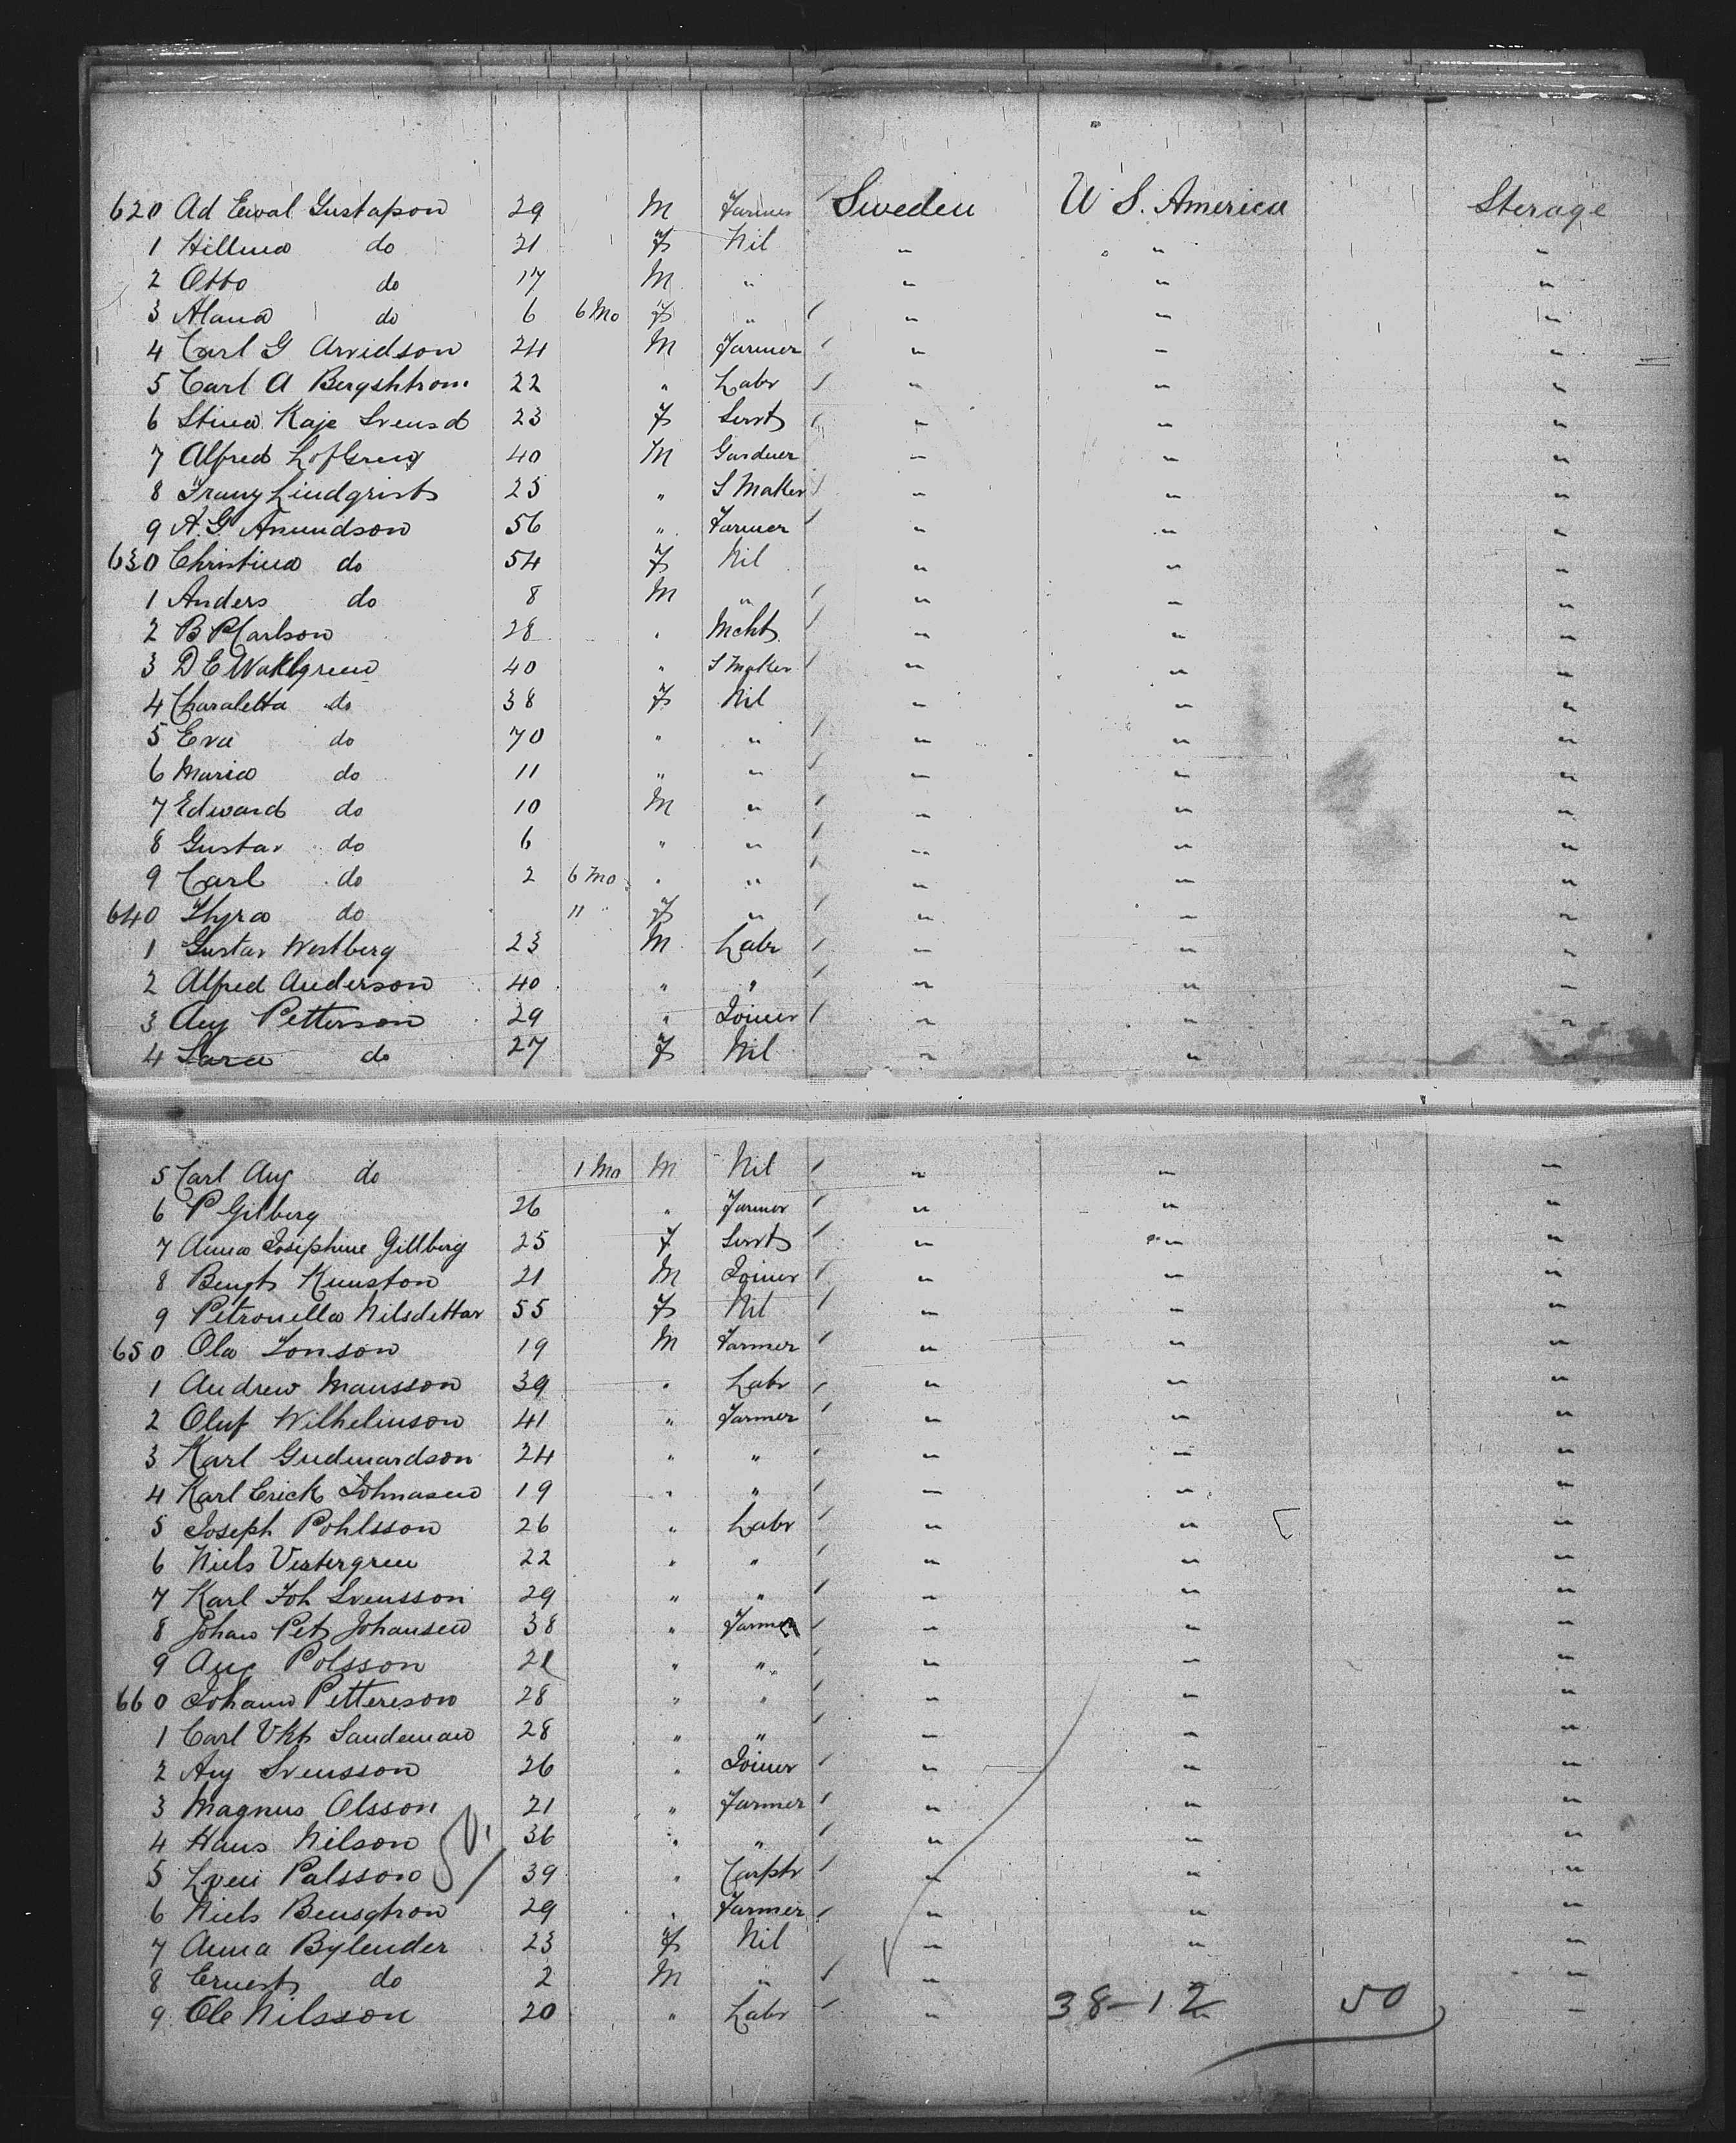 620 Ad Ewal Gustafson 29 M Farmer Sweden U S. America Sterage
1 Hillma do 21 F Nil " " "
2 Otto do 17 M " " " "
3 Alana do 6 6 Mo F " " " "
4 Carl G Arvidson 24 M Farmer " " "
5 Carl A Bergshtrom 22 " Labr " " "
6 Stina Kaje Svensd 23 F Servt " " "
7 Alfred 40 M Gardner " " "
8 Franz Lindgrist 25 " S Maker " " "
9 A. G. Amundson 56 " Farmer " " "
630 Christina do 54 F Nil " " "
1 Anders do 8 M " " " "
2 B P Carlson 28 " Mcht " " "
3 D E Wahlgren 40 " S Maker " " "
4 Charaletta do 38 F Nil " " "
5 Eva do 70 " " " " "
6 Maria do 11 " " " " "
7 Edward do 10 M " " " "
8 Gustav do 6 " " " " "
9 Carl do 2 6 Mo " " " " "
640 Thyra do " F " " " "
1 Gustav Westberg 23 M Labr " " "
2 Alfred Anderson 40 " " " " "
3 Aug Petterson 29 " Joiner " " "
4 Sara do 27 F Nil " " "
5 Carl Aug do 1 Mo M Nil " " "
6 P Gilberg 26 " Farmer " " "
7 Anna Josephine Gillberg 25 F Servt " " "
8 Bengt Knuston 21 M Joiner " " "
9 Petronella Nilsdettar 55 F Nil " " "
650 Ola Jonson 19 M Farmer " " "
1 Andrew Mansson 39 " Labr " " "
2 Oluf Wilhelmson 41 " Farmer " " "
3 Karl Gudmardson 24 " " " " "
4 Karl Erick Johnasen 19 " " " " "
5 Joseph Pohlsson 26 " Labr " " "
6 Niels Vestergren 22 " " " " "
7 Karl Joh Svensson 29 " " " " "
8 Johan Pet Johansen 38 " Farmer " " "
9 Aug Polsson 21 " " " " "
660 Johann Pettereson 28 " " " " "
1 Carl Vkt Sandeman 28 " " " " "
2 Aug Svensson 26 " Joiner " " "
3 Magnus Olsson 21 " Farmer " " "
4 Hans Nilson 36 " " " " "
5 Palsson 39 " Carptr " " "
6 Niels Bensgtron 29 " Farmer " " "
7 Anna Bylender 23 F Nil " " "
8 Ernest do 2 M " " "
9 Ole Nilsson 20 " Labr " 38-12 50 "